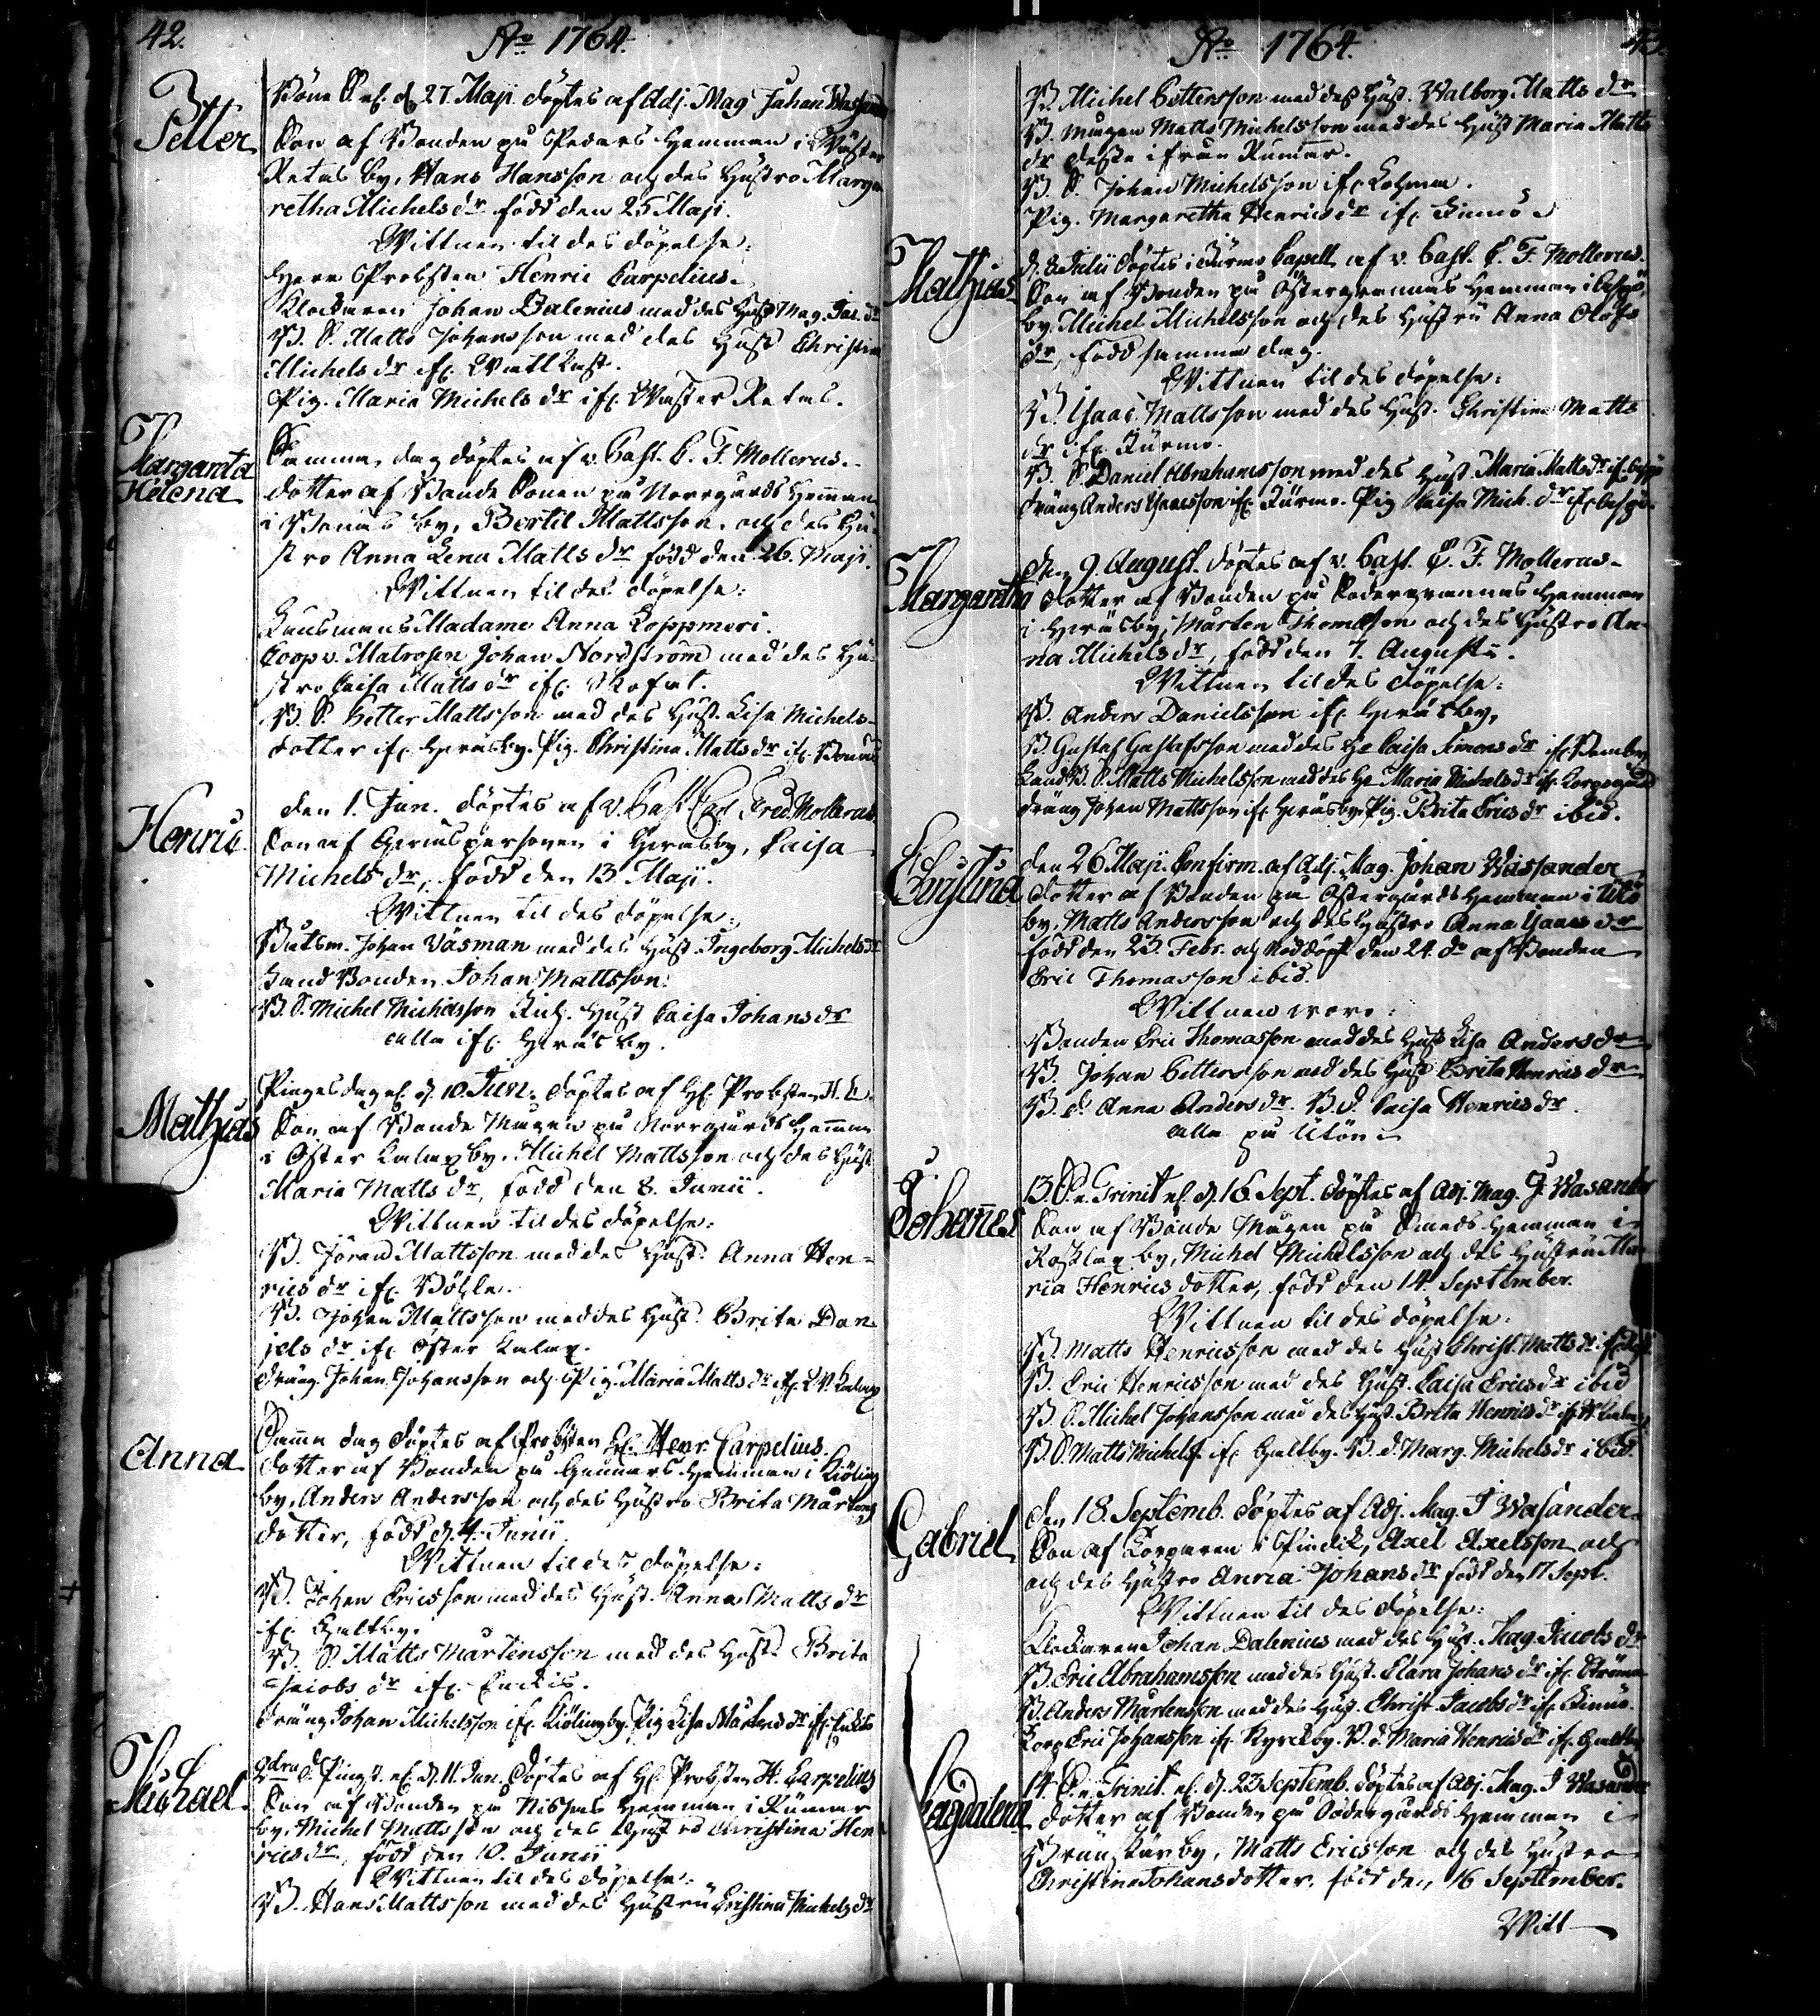 42.
Ao 1764.
Petter
Böne S. el. d. 27. Maji döptes af Adj. Mag. Johan
Son af Bonden på Peders Hemman i Wäster
Retais by, Hans Hansson och des Hustro Marga
retha Michelsdr född den 25 Maji.
Wittnen til des döpelse:
Herr Probsten Henric Carpelius.
Klockaren Johan Dalenius med des Hust. Mag. Jac. dr
B. S. Matts Johansson med des Hust. Christina
Michelsdr if.
Pig. Maria Michels dr if. Wäster Retais.
Margareta
Helena
Samma dag döptes af v. Past. C. F. Mollerus.
dotter af Bonde Sonen på Norrgårds Hemman
i by, Bertil Mattsson och des Hu-
stro Anna Lena Matts dr född den 26. Maji.
Wittnen til des döpelse:
Länsmans Madame Anna Koppmeri.
Coopv. Matrosen Johan Nordström med des Hu-
stro Caisa Mattsdr if.
B. S. Petter Mattsson med des Hust. Lisa Michels-
dotter if. Hvasby. Pig. Christina Matts dr if.
Henric
den 1. Jun. döptes af v. Past. Carl Fred. Mollerus.
Son af Qvinspersonen i Hvasby, Caisa
Michels dr, född den 13 Maji.
Wittnen til des döpelse:
Båtsm. Johan Väsman med des Hust. Ingeborg Michelsdr
Land Bonden Johan Mattsson.
B. S. Michel Michelsson Hust. Caisa Johansdr
alla if. Hvasby.
Mathias
Pingesdag el. d. 10. Jun. döptes af H. Probsten H. C.
Son af Bonde Mågen på Norrgårds Hemman
i Öster Kalax by, Michel Mattsson och des Hust.
Maria Matts dr, född den 8. Junii.
Wittnen til des döpelse:
B. Jöran Mattsson med des Hust. Anna Hen-
rics dr if. Böhle.
B. Johan Mattsson med des Hust. Brita Dan-
jels dr if. Öster Kalax.
dräng. Johan Johansson och Pig. Maria Matts dr if.
Anna
Samma dag döptes af Probsten H. Henr. Carpelius.
dotter af Bonden på Gunnars Hemman i Kiöling
by, Anders Andersson och des Hustro Brita Mårtens
dotter, född d. 4. Junii.
Wittnen til des döpelse:
B. Johan Ericsson med des Hust. Anna Matts dr
if. Galtby.
B. S. Matts Mårtensson med des Hust. Brita
Jacobs dr if. Enckis.
dräng Johan Michelsson if. Kiölingby. Pig. Lisa Mårtens dr if.
Michael
2dra d. Pingst. el. d. 11. Jun. döptes af H. Probsten H. Carpelius
Son af Bonden på Nissas Hemman i Rumar
by, Michel Mattsson och des Hustro Christina Hen
rics dr, född den 10. Junii
Wittnen til des döpelse:
B. Hans Mattsson med des Hustru Cristina Michels dr
Ao 1764.
43.
B. Michel Pettersson med des Hust. Walborg Matts dr
B. mågen Matts Michelsson med des Hust. Maria Matts
dr desse ifrån Rumar.
B. S. Johan Michelsson if.
Pig. Margaretha Henrics dr if.
Mathias
döptes i Jurmo Capell af v. Past. C. F. Mollerus.
Son af Bonden på Östergrannas Hemman i
by, Michel Michelsson och des Hustru Anna Olofs
dr, född samma dag.
Wittnen til des döpelse:
B. Isaac Mattsson med des Hust. Christina Matts
dr if. Jurmo.
B. S. Daniel Abrahamsson med des Hust. Maria Mattsdr if.
dräng Anders Isacsson if. Jurmo. Pig. Caisa Mich. dr if.
Margaretha
den 9. August. döptes af v. Past. C. F. Mollerus.
dotter af Bonden på Södergrannas Hemman
i Hvasby, Mårten Thomasson och des Hustro An-
na Michels dr, född den 7. Augusti.
Wittnen til des döpelse:
B. Anders Danielsson if. Hvasby,
B. Gustaf Gustafsson med des H. Caisa Simons dr if.
Land B. S. Matts Michelsson med des H. Maria Michels dr if.
dräng Johan Mattsson if. Hvasby. Pig. Brita Erics dr ibid.
Christina
den 26 Maji. Confirm. af Adj. Mag. Johan Wasander
dotter af Bonden på Östergårds Hemman i Utö
by, Matts Andersson och des Hustro Anna Isaacs dr
född den 23. Febr. och Nöddöpt den 24. do af Bonden
Eric Thomasson ibid.
Wittnen woro:
Bonden Eric Thomasson med des Hust. Lisa Anders dr.
B. Johan Pettersson med des Hust. Brita Henrics dr
B. d. Anna Anders dr. B. d. Caisa Henrics dr.
alla på Utön.
Johannes
13. S. e. Trinit. el. d. 16 Sept. döptes af Adj. Mag. J. Wasander
Son af Bonde Mågen på Smeds Hemman i
Rosklax by, Michel Michelsson och des Hustru Ma-
ria Henrics dotter, född den 14. September.
Wittnen til des döpelse.
B. Matts Henricsson med des Hust. Christ. Matts dr
B. Eric Henricsson med des Hust. Caisa Ericsdr ibid
B. S. Michel Johansson med des Hust. Brita Henrics dr if.
B. S. Matts Michelss. if. Galtby. B. d. Marg. Michelsdr ibid.
Gabriel
den 18. Septemb. döptes af Adj. Mag. J Wasander.
Son af Torparen i Axel Axelsson och
och des Hustro Anna Johans dr född den 17 Sept.
Wittnen til des döpelse:
Klockaren Johan Dalenius med des Hust. Mag. Jacobs dr
B. Eric Abrahamsson med des Hust. Clara Johans dr if. Ströma
B. Anders Mårtensson med des Hust. Christ. Jacobs dr if.
Torp. Eric Johansson if. Kyrckby. B. d. Maria Henrics dr if. Galtby
Magdalena
14. S. e. Trinit. el. d. 23 Septemb. döptes af Adj. Mag. J Wasander
dotter af Bonden på Södergårds Hemman i
by, Matts Ericsson och des Hustro
Christina Johansdotter, född den 16 September.
Witt